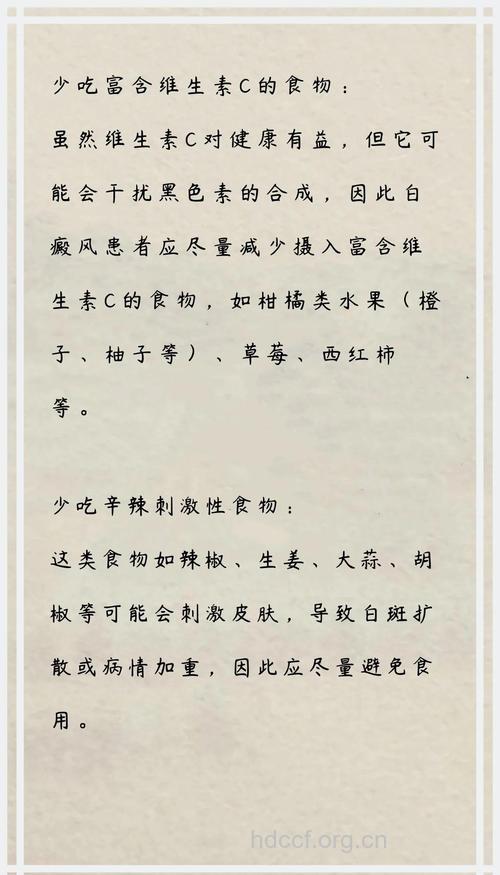 少吃富含维生素C的食物：
虽然维生素C对健康有益，但它可
能会干扰黑色素的合成，因此白
癜风患者应尽量减少摄入富含维
生素C的食物，如柑橘类水果（橙
子、柚子等）、草莓、西红柿
等。
少吃辛辣刺激性食物：
这类食物如辣椒、生姜、大蒜、胡
椒等可能会刺激皮肤，导致白斑扩
散或病情加重，因此应尽量避免食
用。
hdccf.org.cn